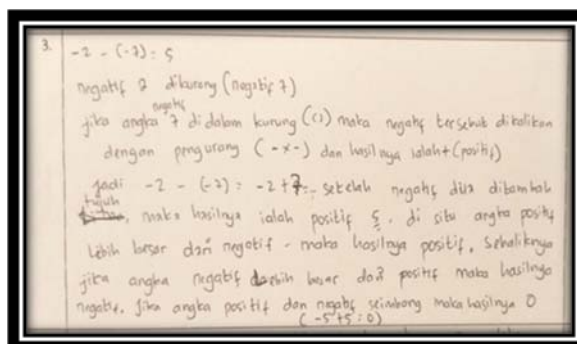 3. -2 - (-7) = 5
negatif 2 dikurang (negatif 7)
negatif
jika angka 7 didalam kurung (()) maka negatif tersebut dikalikan
dengan pengurang (-x-) dan hasilnya ialah + (positif)
jadi -2 - (-7) = -2+7=- setelah negatif dua ditambah
tujuh
, maka hasilnya ialah positif 5. di situ angka positif
lebih besar dari negatif - maka hasilnya positif. Sebaliknya
jika angka negatif lebih besar dari positif maka hasilnya
negatif. Jika angka positif dan negatif seimbang maka hasilnya 0
(-5+5=0)